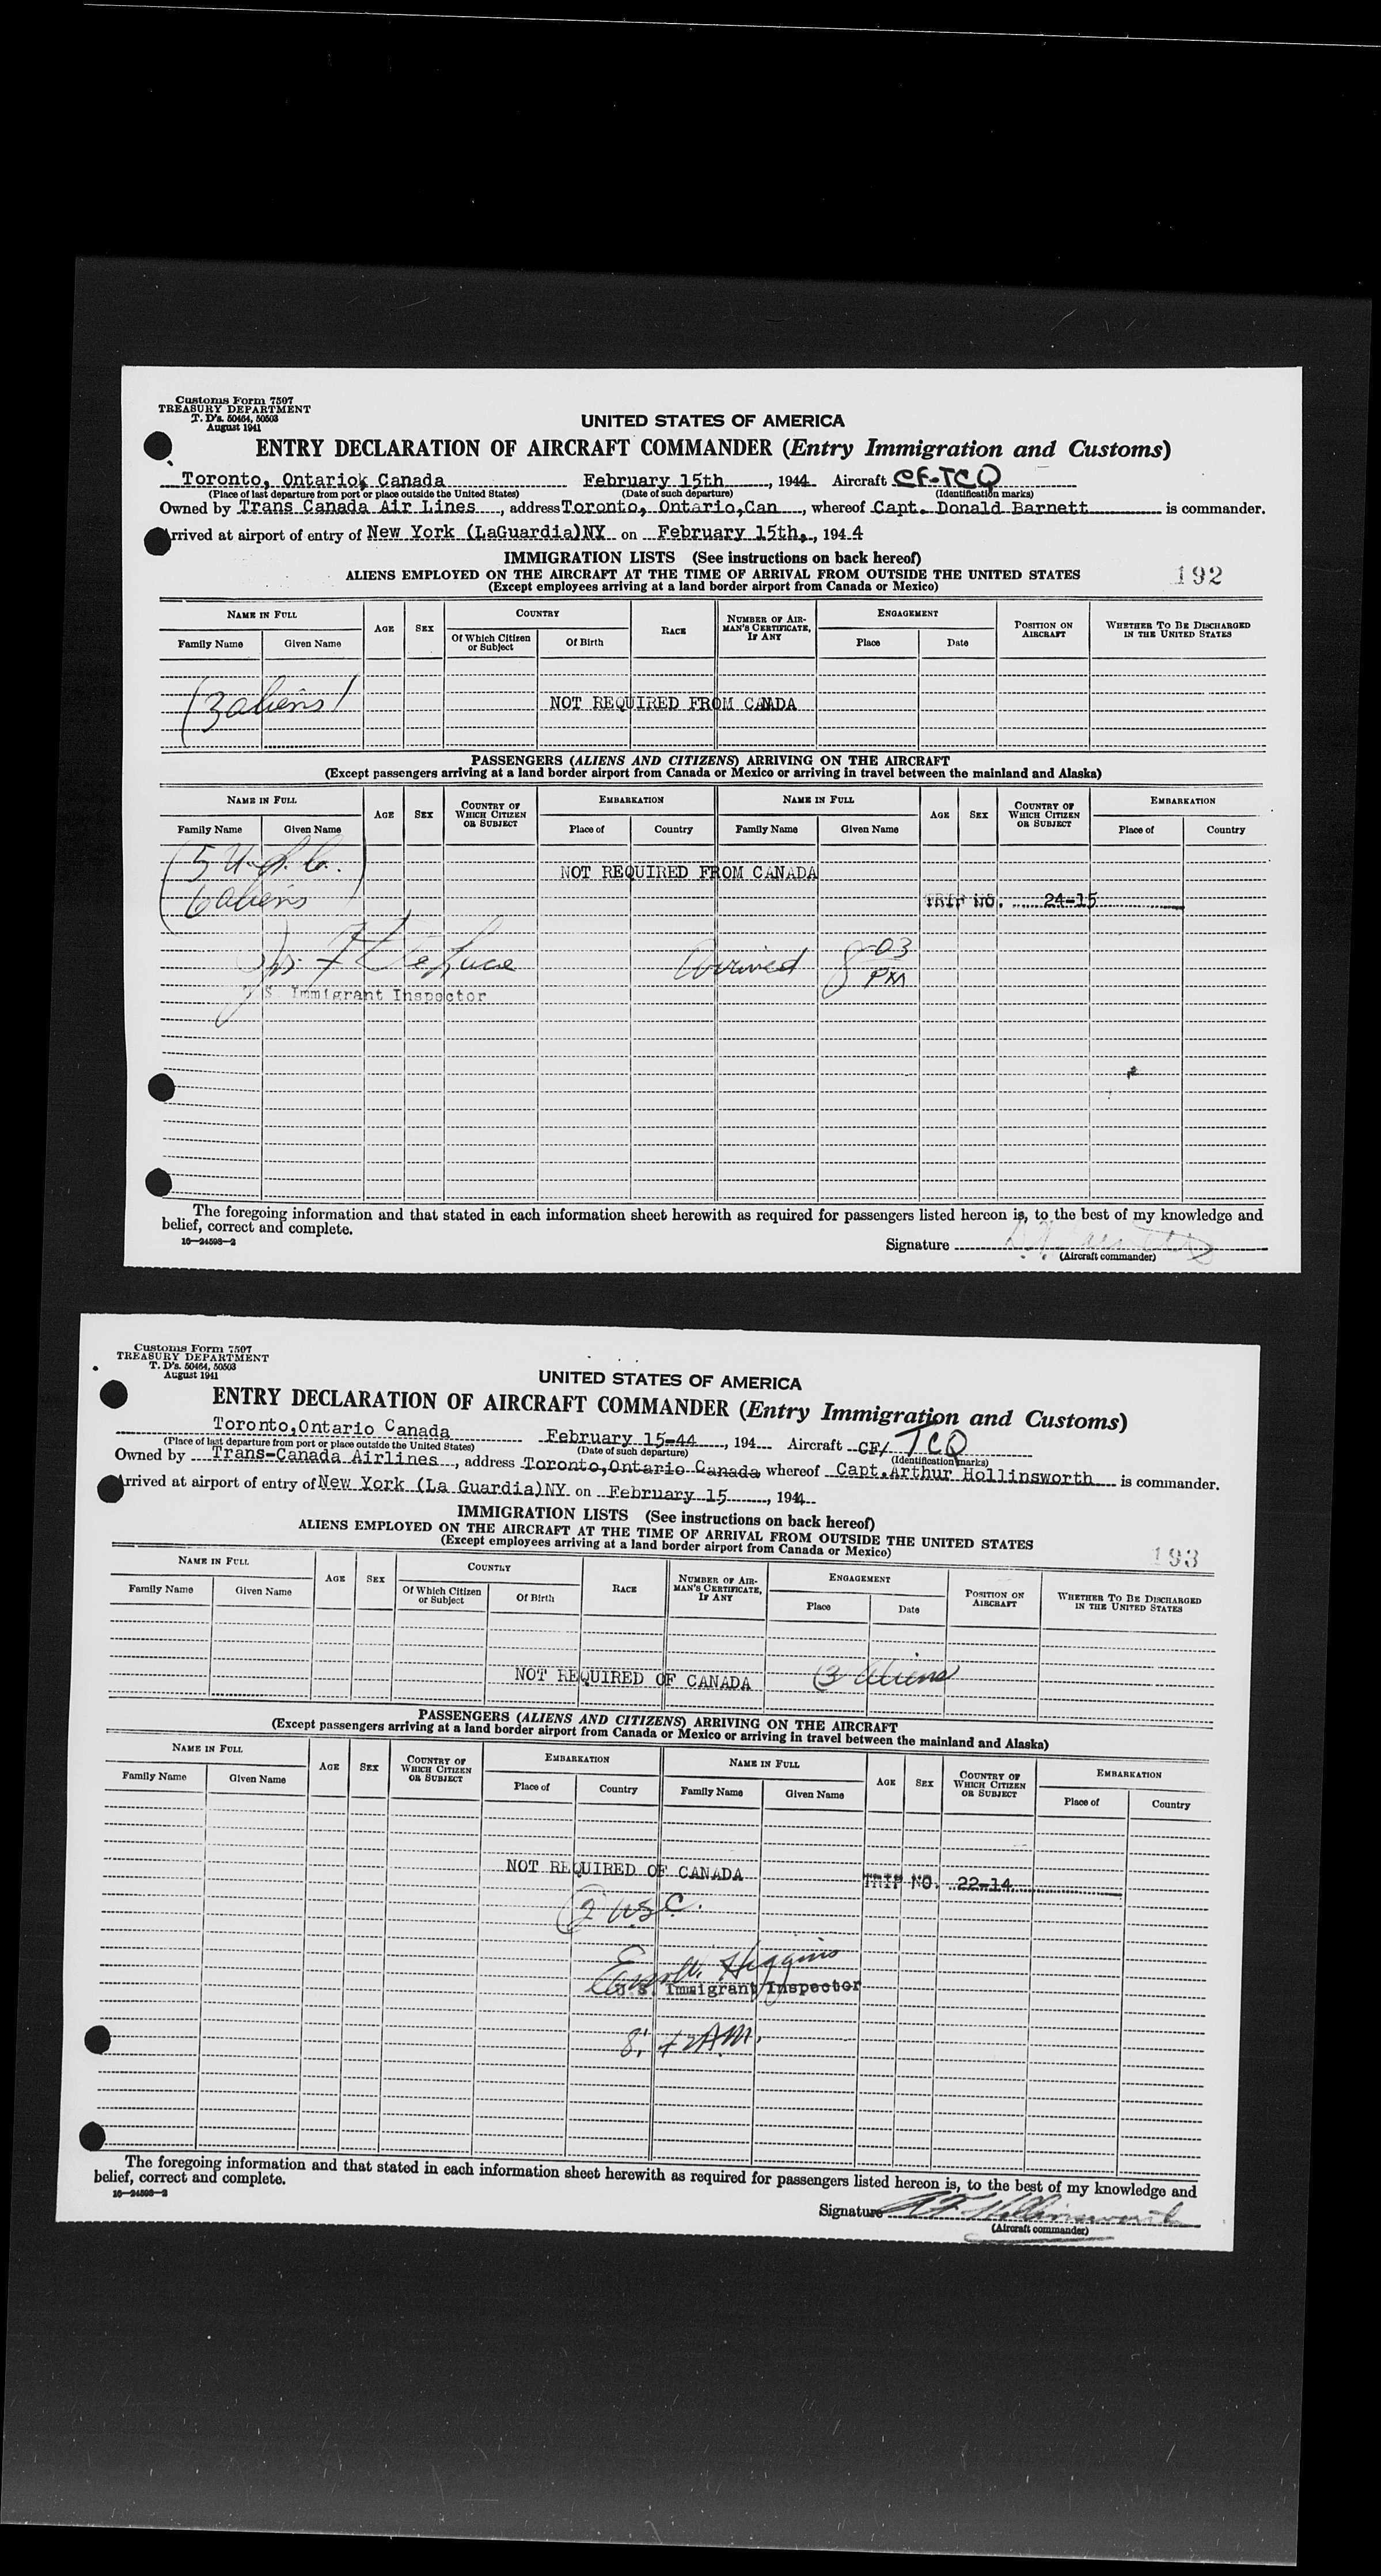 Customs Form 7507
TREASURY DEPARTMENT
T. D's. 50464, 50503
August 1941
UNITED STATES OF AMERICA
ENTRY DECLARATION OF AIRCRAFT COMMANDER (Entry Immigration and Customs)
Toronto, Ontario, Canada February 15th, 1944 Aircraft CF-TCQ
(Place of last departure from port or place outside the United States) (Date of such departure) (Identification marks)
Owned by Trans Canada Air Lines, address Toronto, Ontario,Can, whereof Capt. Donald Barnett is commander.
Arrived at airport of entry of New York (LaGuardia)NY on February 15th,, 1944
IMMIGRATION LISTS (See instructions on back hereof)
ALIENS EMPLOYED ON THE AIRCRAFT AT THE TIME OF ARRIVAL FROM OUTSIDE THE UNITED STATES
192
(Except employees arriving at a land border airport from Canada or Mexico)
NAME IN FULL AGE SEX COUNTRY RACE NUMBER OF AIRMAN'S CERTIFICATE, IF ANY ENGAGEMENT POSITION ON AIRCRAFT WHETHER TO BE DISCHARGED IN THE UNITED STATES
Family Name Given Name Of Which Citizen or Subject Of Birth Place Date
(3 aliens) NOT REQUIRED FROM CANADA
PASSENGERS (ALIENS AND CITIZENS) ARRIVING ON THE AIRCRAFT
(Except passengers arriving at a land border airport from Canada or Mexico or arriving in travel between the mainland and Alaska)
NAME IN FULL AGE SEX COUNTRY OF WHICH CITIZEN OR SUBJECT EMBARKATION NAME IN FULL AGE SEX COUNTRY OF WHICH CITIZEN OR SUBJECT EMBARKATION
Family Name Given Name Place of Country Family Name Given Name Place of Country
(5 U.S.C.)
NOT REQUIRED FROM CANADA
6 aliens TRIP NO. 24-15
DeLucie Arrived 8 03 PM
U.S. Immigrant Inspector
The foregoing information and that stated in each information sheet herewith as required for passengers listed hereon is, to the best of my knowledge and
belief, correct and complete.
16—24598—2
Signature
(Aircraft commander)
Customs Form 7507
TREASURY DEPARTMENT
T. D's. 50464, 50503
August 1941
UNITED STATES OF AMERICA
ENTRY DECLARATION OF AIRCRAFT COMMANDER (Entry Immigration and Customs)
Toronto,Ontario Canada February 15-44, 194 Aircraft CF/ TCQ
(Place of last departure from port or place outside the United States) (Date of such departure) (Identification marks)
Owned by Trans-Canada Airlines, address Toronto,Ontario Canada whereof Capt.Arthur Hollinsworth is commander.
Arrived at airport of entry of New York (La Guardia)NY on February 15, 1944
IMMIGRATION LISTS (See instructions on back hereof)
ALIENS EMPLOYED ON THE AIRCRAFT AT THE TIME OF ARRIVAL FROM OUTSIDE THE UNITED STATES
193
(Except employees arriving at a land border airport from Canada or Mexico)
NAME IN FULL AGE SEX COUNTRY RACE NUMBER OF AIRMAN'S CERTIFICATE, IF ANY ENGAGEMENT POSITION ON AIRCRAFT WHETHER TO BE DISCHARGED IN THE UNITED STATES
Family Name Given Name Of Which Citizen or Subject Of Birth Place Date
NOT REQUIRED OF CANADA (3 aliens
PASSENGERS (ALIENS AND CITIZENS) ARRIVING ON THE AIRCRAFT
(Except passengers arriving at a land border airport from Canada or Mexico or arriving in travel between the mainland and Alaska)
NAME IN FULL AGE SEX COUNTRY OF WHICH CITIZEN OR SUBJECT EMBARKATION NAME IN FULL AGE SEX COUNTRY OF WHICH CITIZEN OR SUBJECT EMBARKATION
Family Name Given Name Place of Country Family Name Given Name Place of Country
NOT REQUIRED OF CANADA TRIP NO. 22-14
(2 USC.
Higgins
U.S. Immigrant Inspector
8:42 AM.
The foregoing information and that stated in each information sheet herewith as required for passengers listed hereon is, to the best of my knowledge and
belief, correct and complete.
16—24598—2
Signature Hollinsworth
(Aircraft commander)